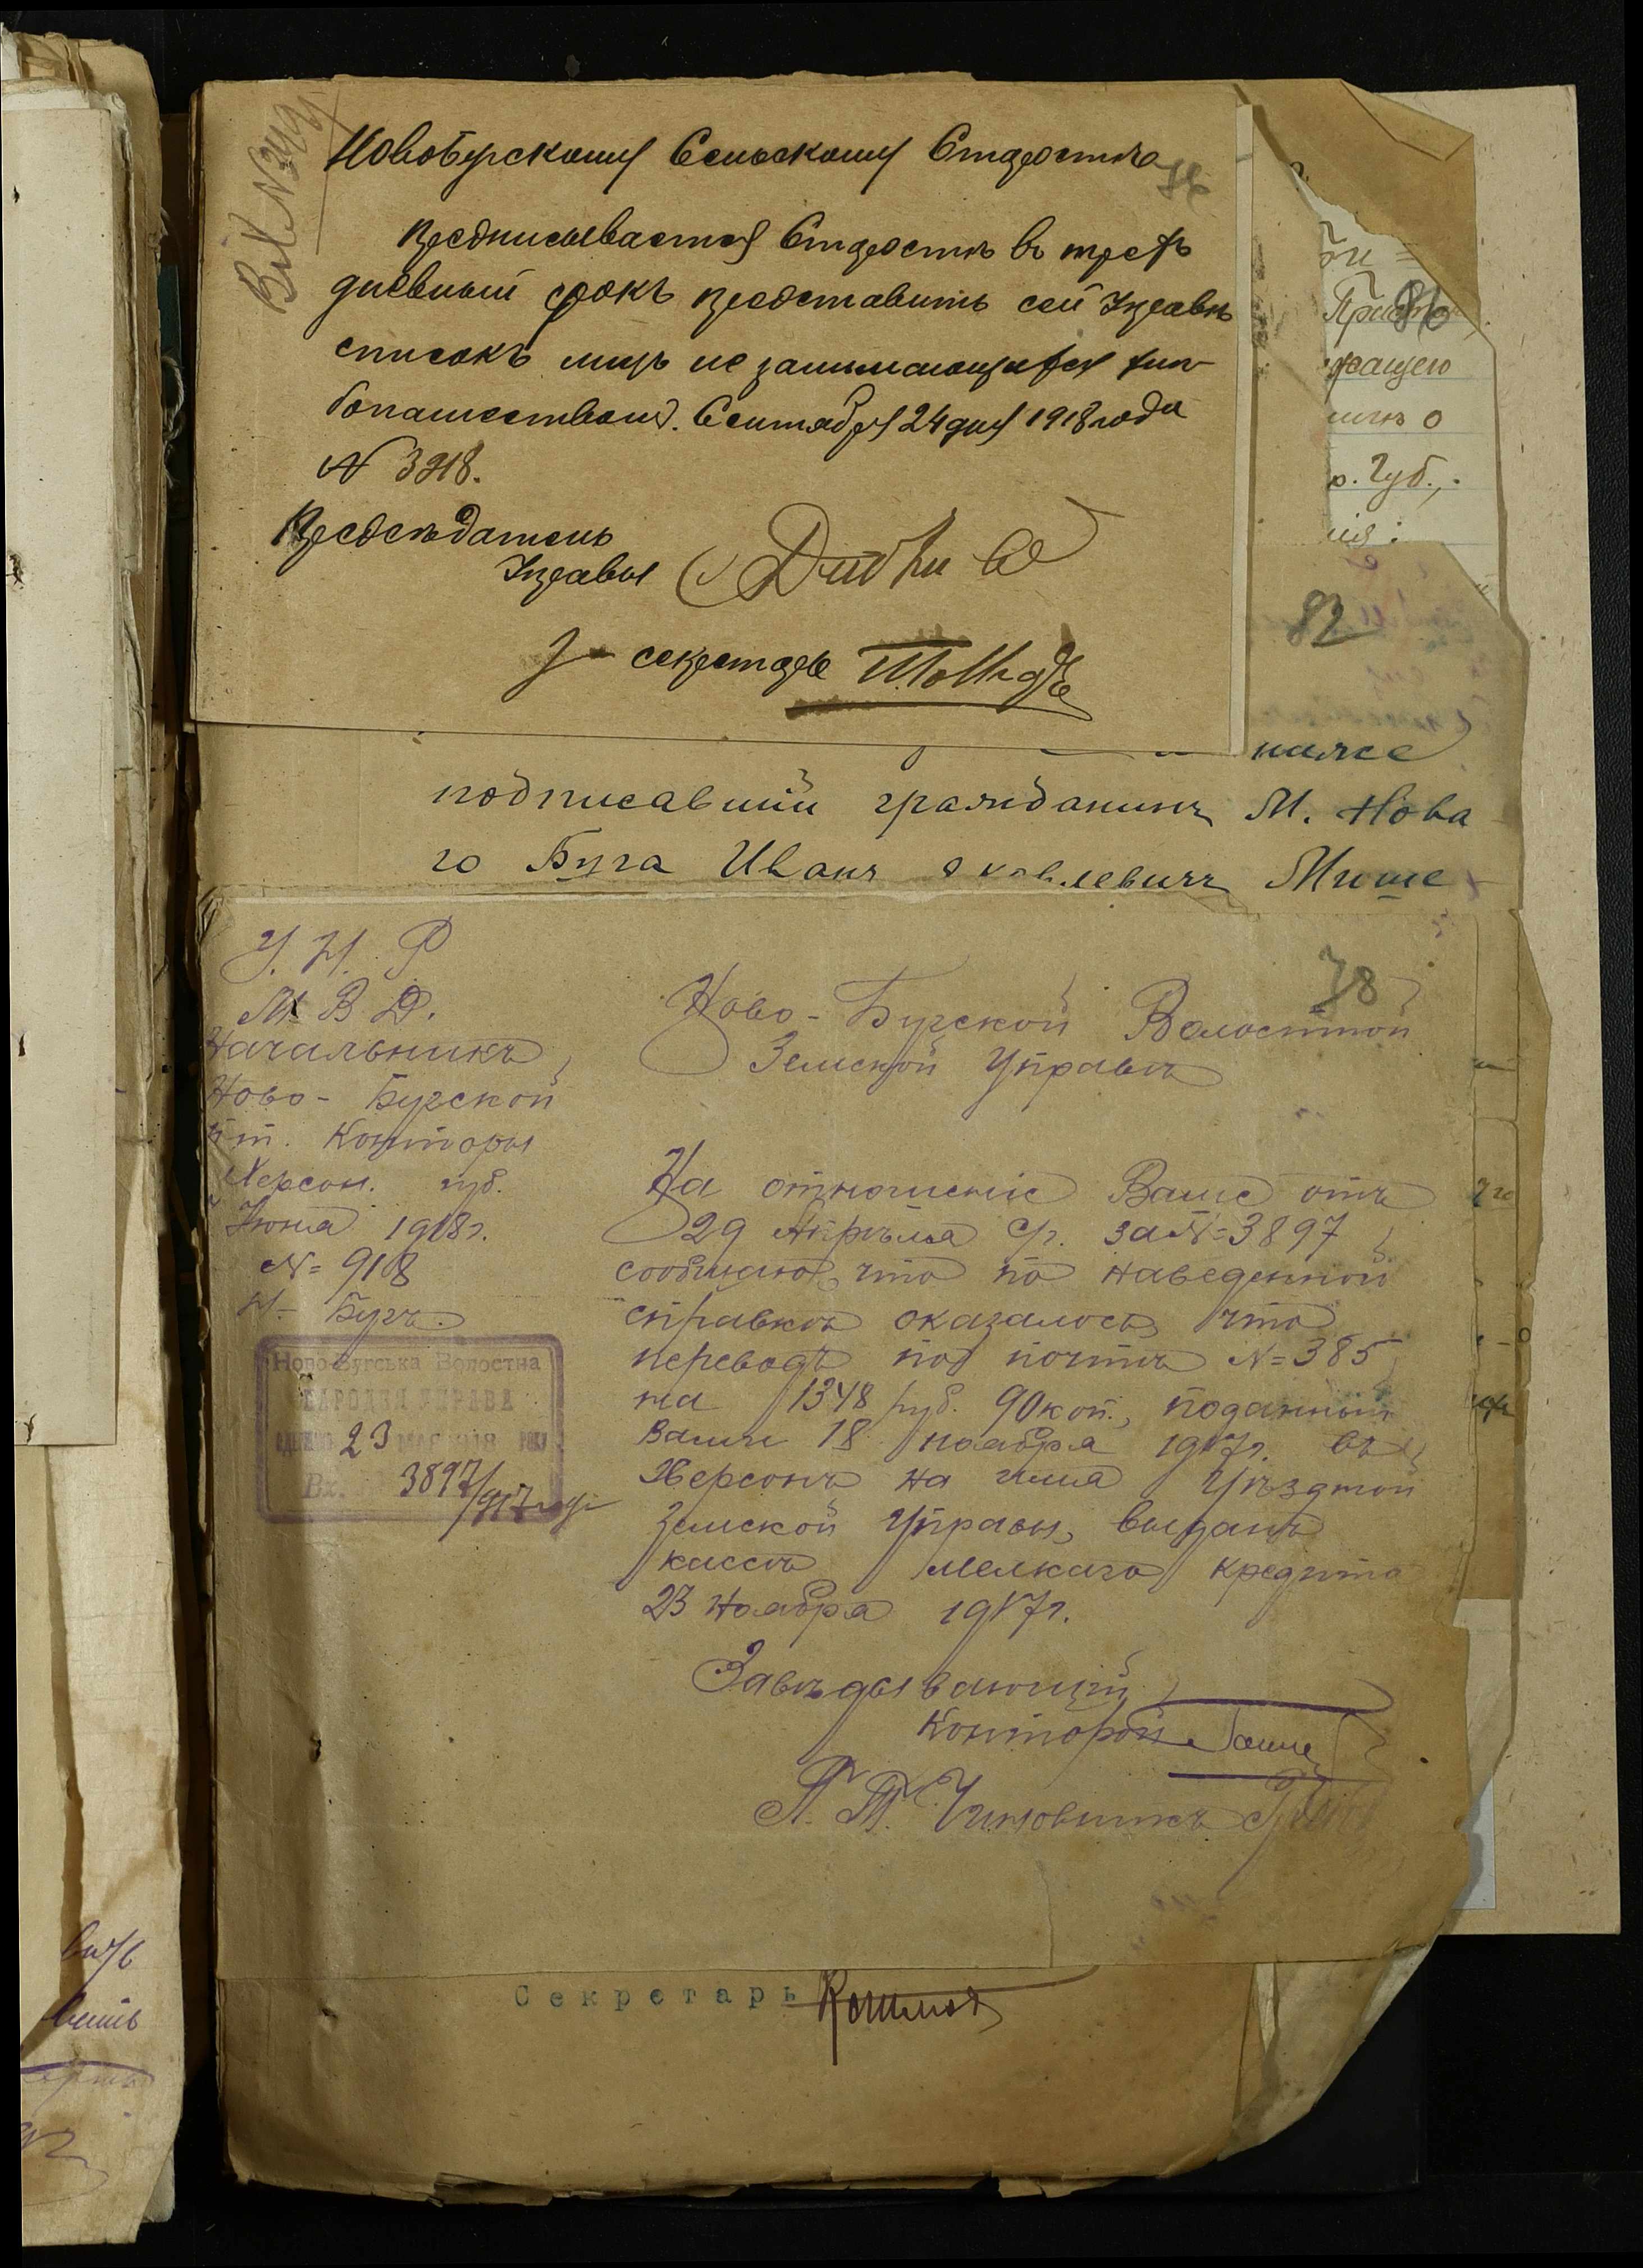 Новобугскому Сельскому Старостѣ
Предписывается Старостѣ въ трех
дневный срокъ представить сей Управѣ
списокъ лицъ не занимающихся хлѣ
бопашествомъ. Сентября 24 дня 1918 года
N
Предсѣдатель
Управы
За секретаря
86
Приста
жащею
о
о. Губ.,
82
ниже
подписавшій гражданинъ М. Нова
го Буга Иванъ Яковлевичъ Мише
78
У. Н. Р
М В Д.
Начальникъ
Ново-Бугской
п т. Конторы
Херсон. губ.
Июня 1918 г.
N= 918
Н- Бугъ.
Ново-Бугська Волостна
НАРОДНЯ УПРАВА
23 мая
Вх. 3897/917 года
Ново-Бугской Волостной
Земской Управѣ
На отношеніе Ваше отъ
29 Апрѣля с/г. за N=3897
сообщаю, что по наведенной
справкѣ оказалось, что
переводъ по почтѣ N=385
на 1348 руб. 90 коп., поданный
Вами 18 ноября 1917 г. въ
Херсонъ на имя Уѣздной
Земской Управы, выданъ
кассѣ мелкаго кредита
23 Ноября 1917 г.
Завѣдывающій
Конторой
П. Т. Чиновникъ
Секретарь